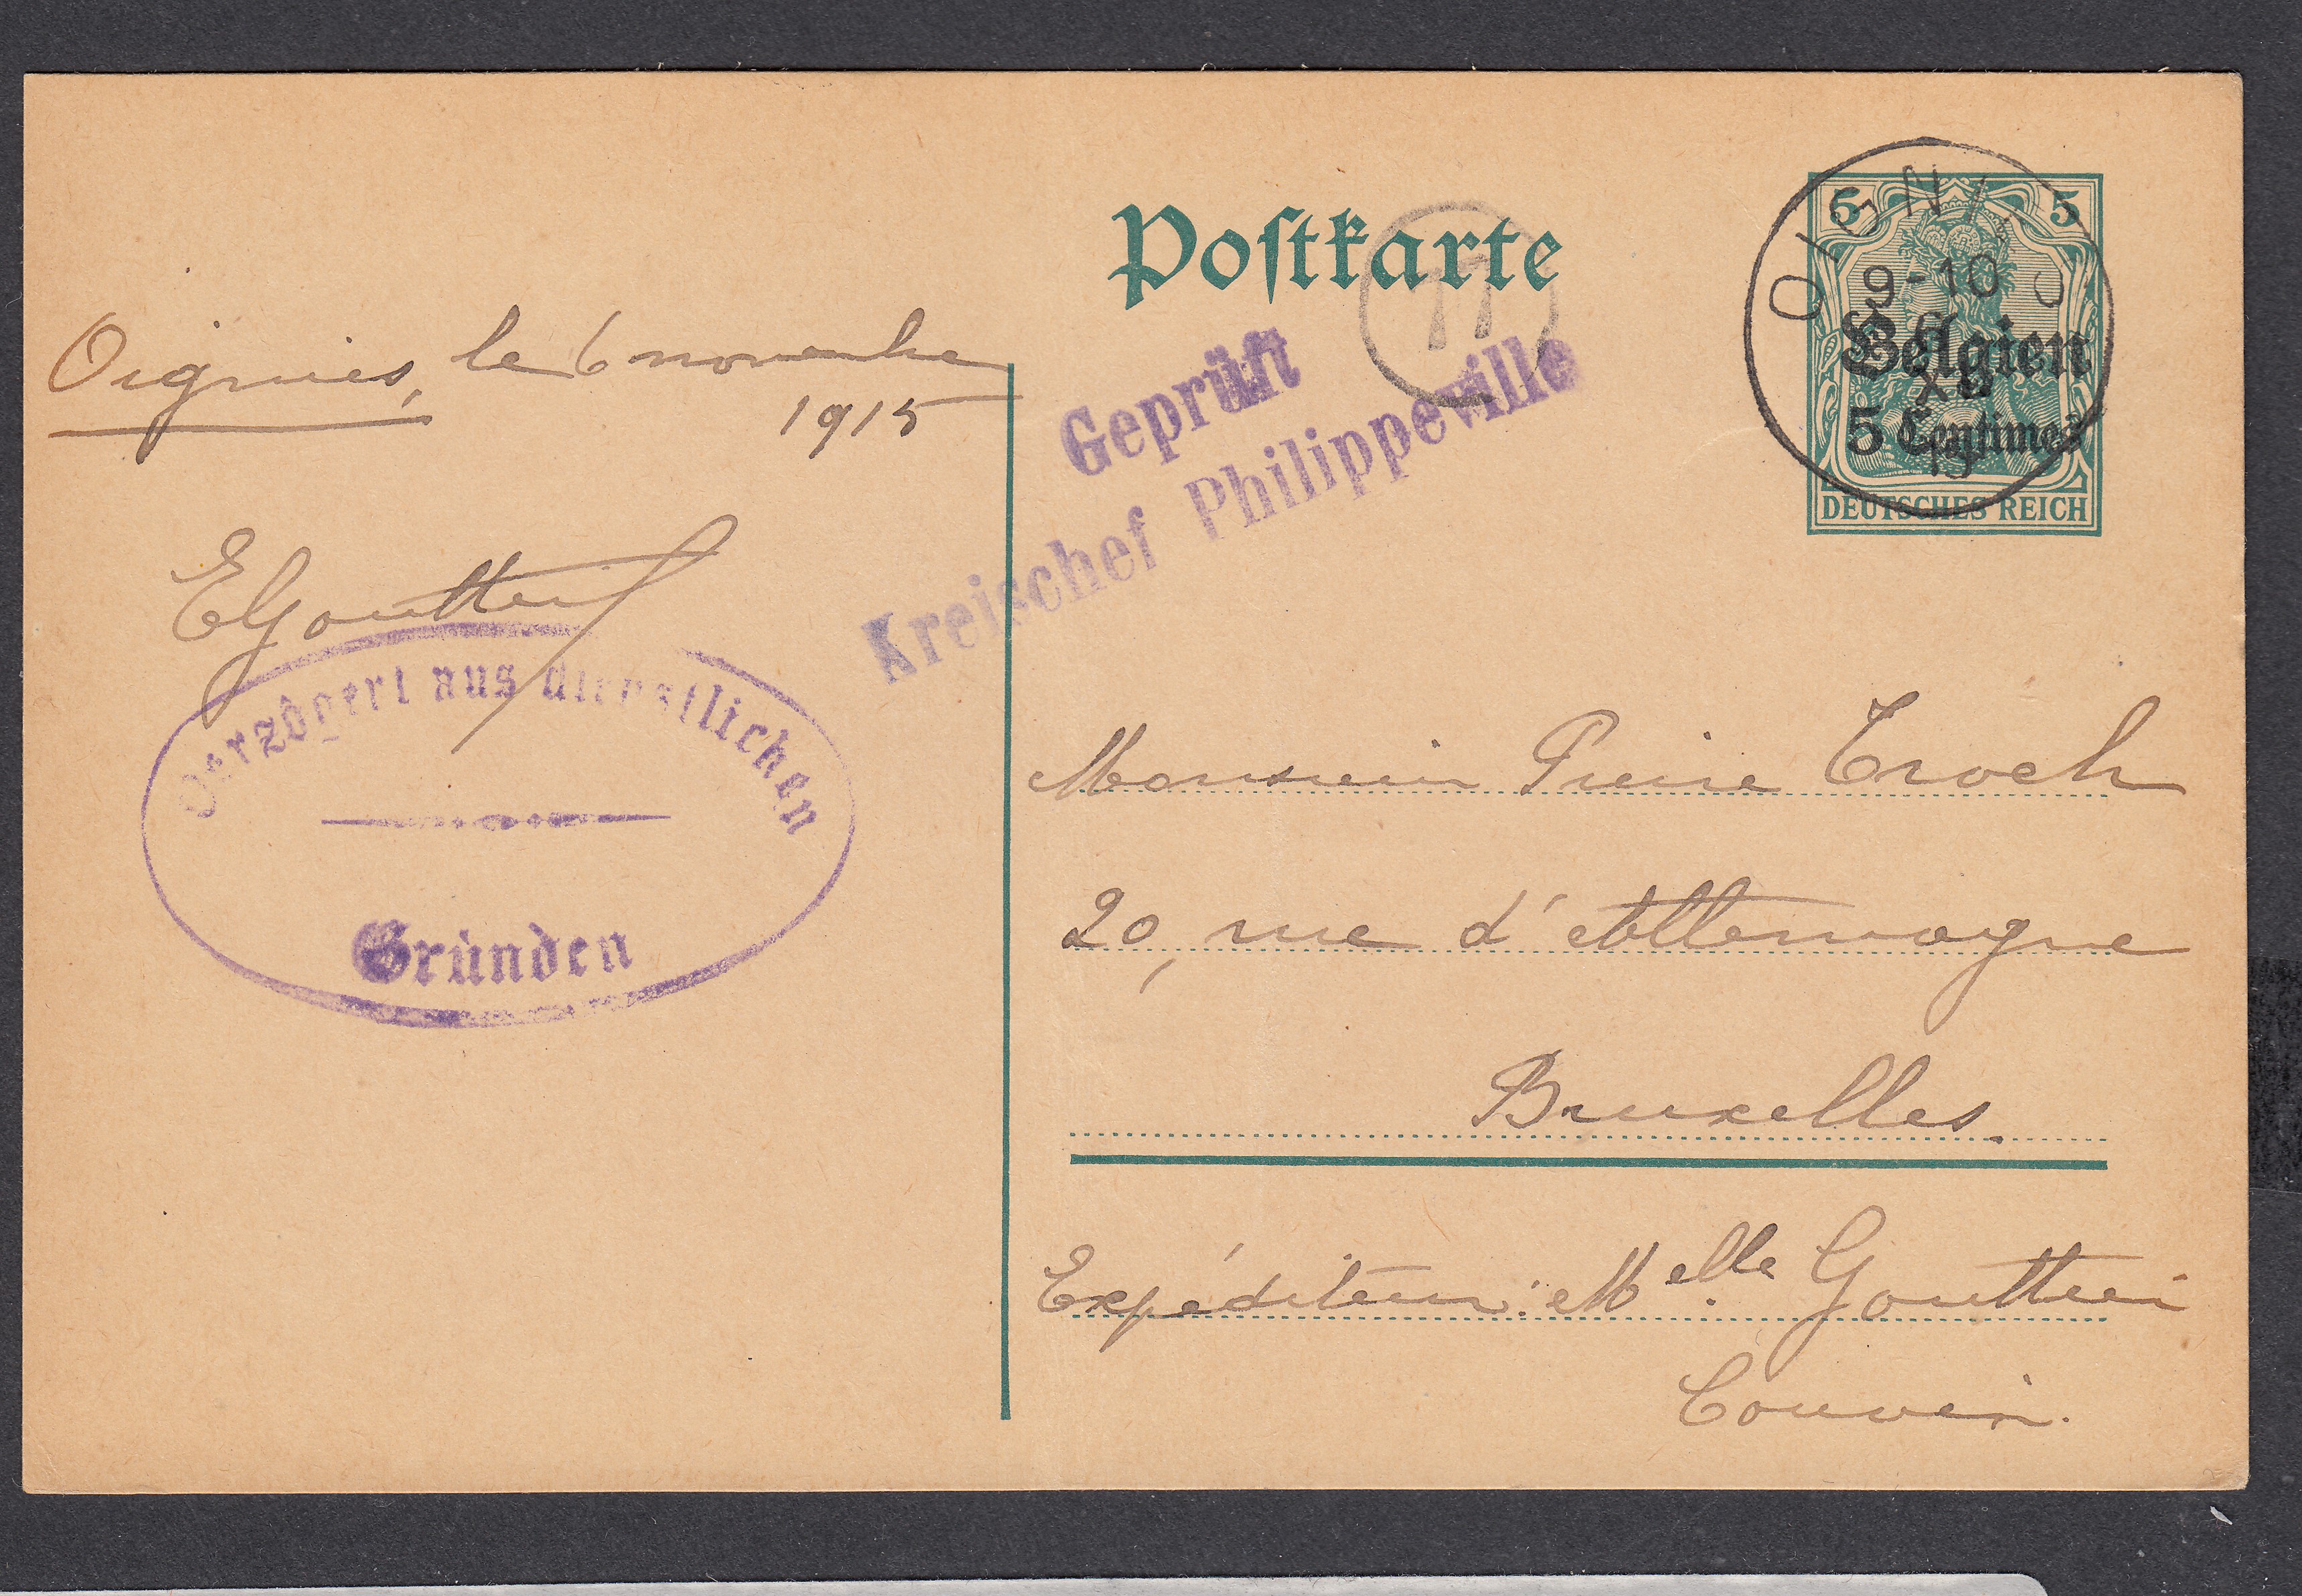 Postkarte
77
5 5
OIGNI
9-10
Belgien
XI
5 Centimes
15
DEUTSCHES REICH
Geprüft
Kreischef Philippeville
Oignies, le 6 novembre
1915
EGouttier
Verzögert aus dienstlichen
Gründen
Monsieur Pierre Troch
20, rue d'Allemagne
Bruxelles.
Expéditeur: Melle Gouttier
Couvin.